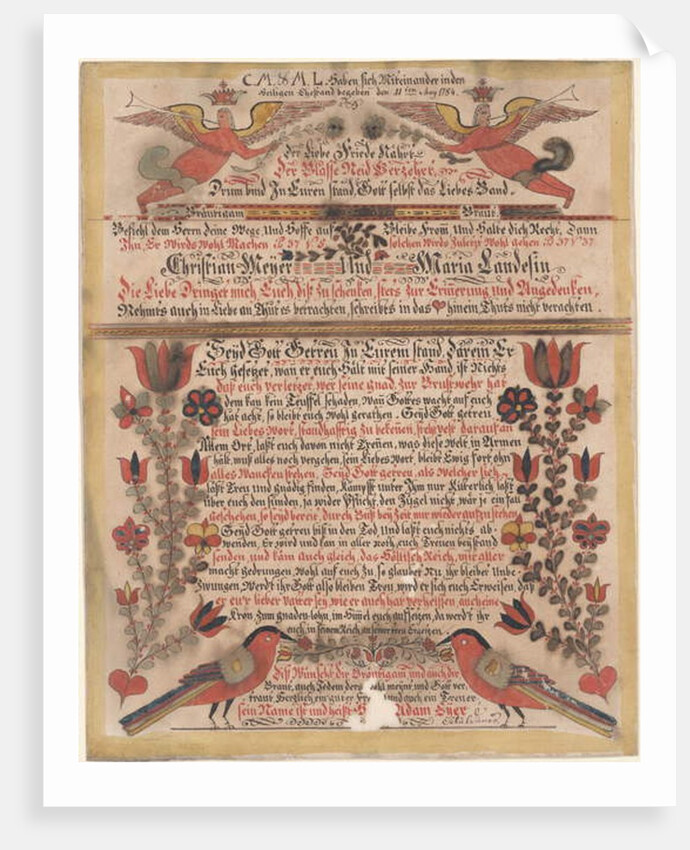 C. M. & M. L. Haben sich Miteinander in den
Heiligen Ehestand begeben den 11ten May 1784.
Der Liebe Friede Nährt
Der Blasse Neid Verzehrt
Drum bind Zu Euren stand, Gott selbst das Liebes Band.
Bräutigam Braut
Befiehl dem Herrn deine Wege, Und Hoffe auf Bleibe From, Und Halte dich Recht, Dann
Ihn, Er Wirds wohl Machen P 37 V 5 solchen Wirds Zuletzt Wohl gehen P 37 V 37
Christian Meyer Und Maria Landesin
Die Liebe Dringet mich Euch diß Zu schenken, stets zur Erinerung und Angedenken,
Nehmts auch in Liebe an Thut es betrachten, schreibts in das hinein Thuts nicht verachten.
Seyd Gott Getreu In Eurem stand, Darein Er
Euch gesetzet, wan er euch Hält mit seiner Hand, ist Nichts
daß euch verletzet, wer seine gnad, zur Brustwehr hat
dem kan kein Teuffel schaden, Wan Gottes wacht auf euch
hat acht, so bleibt euch wohl gerathen. Seyd Gott getreu
sein Liebes Wort, standhafftig Zu bekenen, steht vest darauf an
Allem Ort, laßt euch davon nicht Trenen, was diese Welt, in Armen
hält, muß alles noch vergehen, sein Liebes wort, bleibt Ewig fort, ohn
alles Wancken stehen, Seyd Gott getreu, als Welcher sich,
läßt Treu und gnädig finden, Kämpfft unter Ihm nur Ritterlich laßt
über euch den sünden, ja wider Pflicht, den Zügel nicht, wär je ein fall
Geschehen, so seyd bereit, durch Buß bey Zeit nur wieder aufzustehen
Seyd Gott getreu biß in den Tod, Und laßt euch nichts ab-
wenden, Er wird und kan in aller noth, euch Treuen beystand
senden, und käm auch gleich, das Höllisch Reich, mit aller
macht gedrungen, Wohl auf euch Zu, so glaubet Nu, ihr bleibet Unbe-
Zwungen, Werdt ihr Gott also bleiben Treu, wird er sich euch Erweisen, daß
er eu'r lieber vatter sey, wie er euch hat verheissen, auch eine
Kron, Zum gnaden-lohn, im Himel euch auffsetzen, da werd't ihr
euch, in seinem Reich
Diß Wünscht Die Bräutigam und auch die
Braut, auch Jedem ders wohl meint, und Gott ver-
traut Hertzlich ein guter und auch ein Treuer
sein Name ist und heißt Adam Eyer